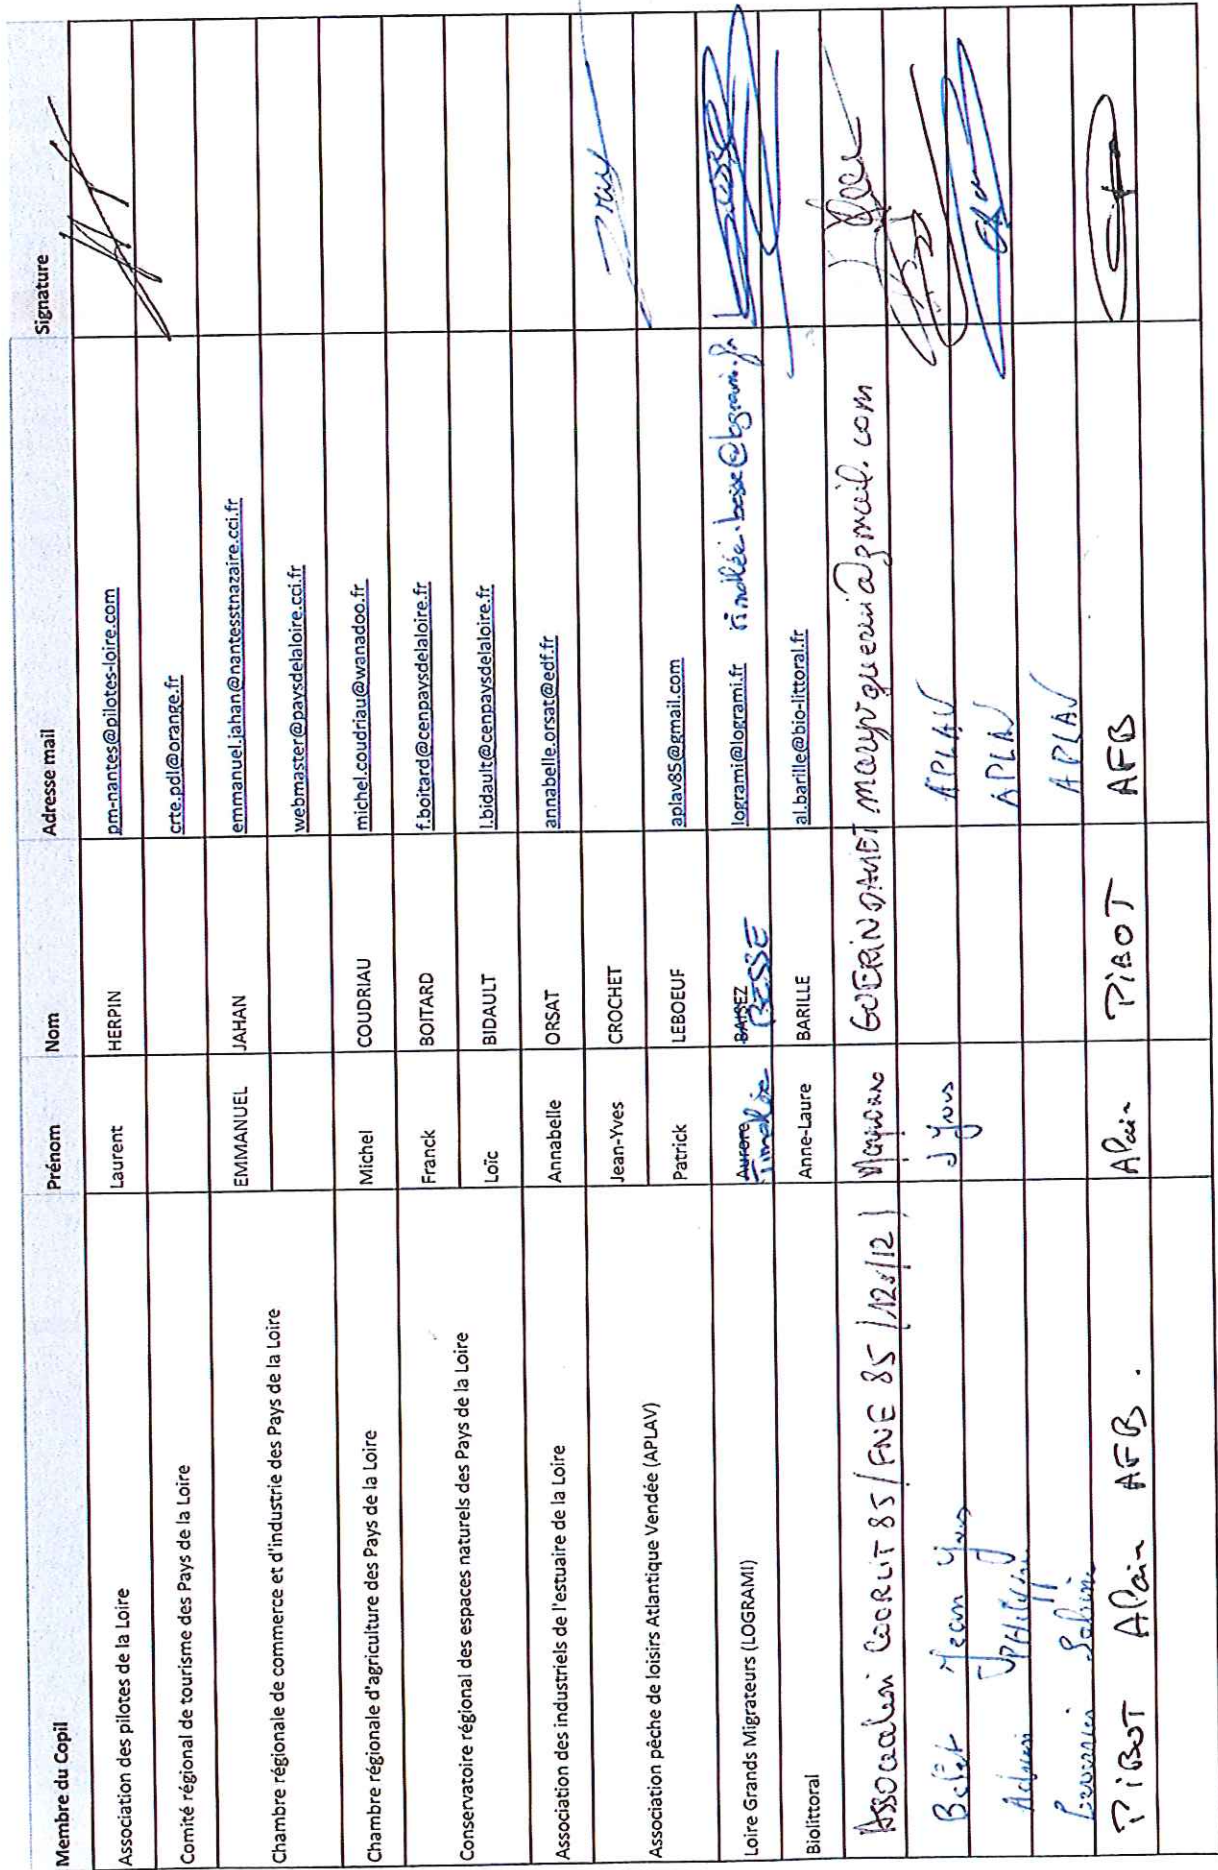 Membre du Copil Prénom Nom Adresse mail Signature
Association des pilotes de la Loire Laurent HERPIN pm-nantes@pilotes-loire.com
Comité régional de tourisme des Pays de la Loire crte.pdl@orange.fr
Chambre régionale de commerce et d'industrie des Pays de la Loire EMMANUEL JAHAN emmanuel.jahan@nantesstnazaire.cci.fr
webmaster@paysdelaloire.cci.fr
Chambre régionale d'agriculture des Pays de la Loire Michel COUDRIAU michel.coudriau@wanadoo.fr
Conservatoire régional des espaces naturels des Pays de la Loire Franck BOITARD f.boitard@cenpaysdelaloire.fr
Loïc BIDAULT l.bidault@cenpaysdelaloire.fr
Association des industriels de l'estuaire de la Loire Annabelle ORSAT annabelle.orsat@edf.fr
Association pêche de loisirs Atlantique Vendée (APLAV) Jean-Yves CROCHET
Patrick LEBOEUF aplav85@gmail.com
Loire Grands Migrateurs (LOGRAMI) Aurore Timothée BAISEZ BESSE logrami@logrami.fr timothée.besse@logrami.fr
Biolittoral Anne-Laure BARILLE al.barille@bio-littoral.fr
Association CORLIT 85 / FNE 85
Jean Yves J Yves APLAV
APLAV
APLAV
PIBOT Alain AFB. Alain PIBOT AFB